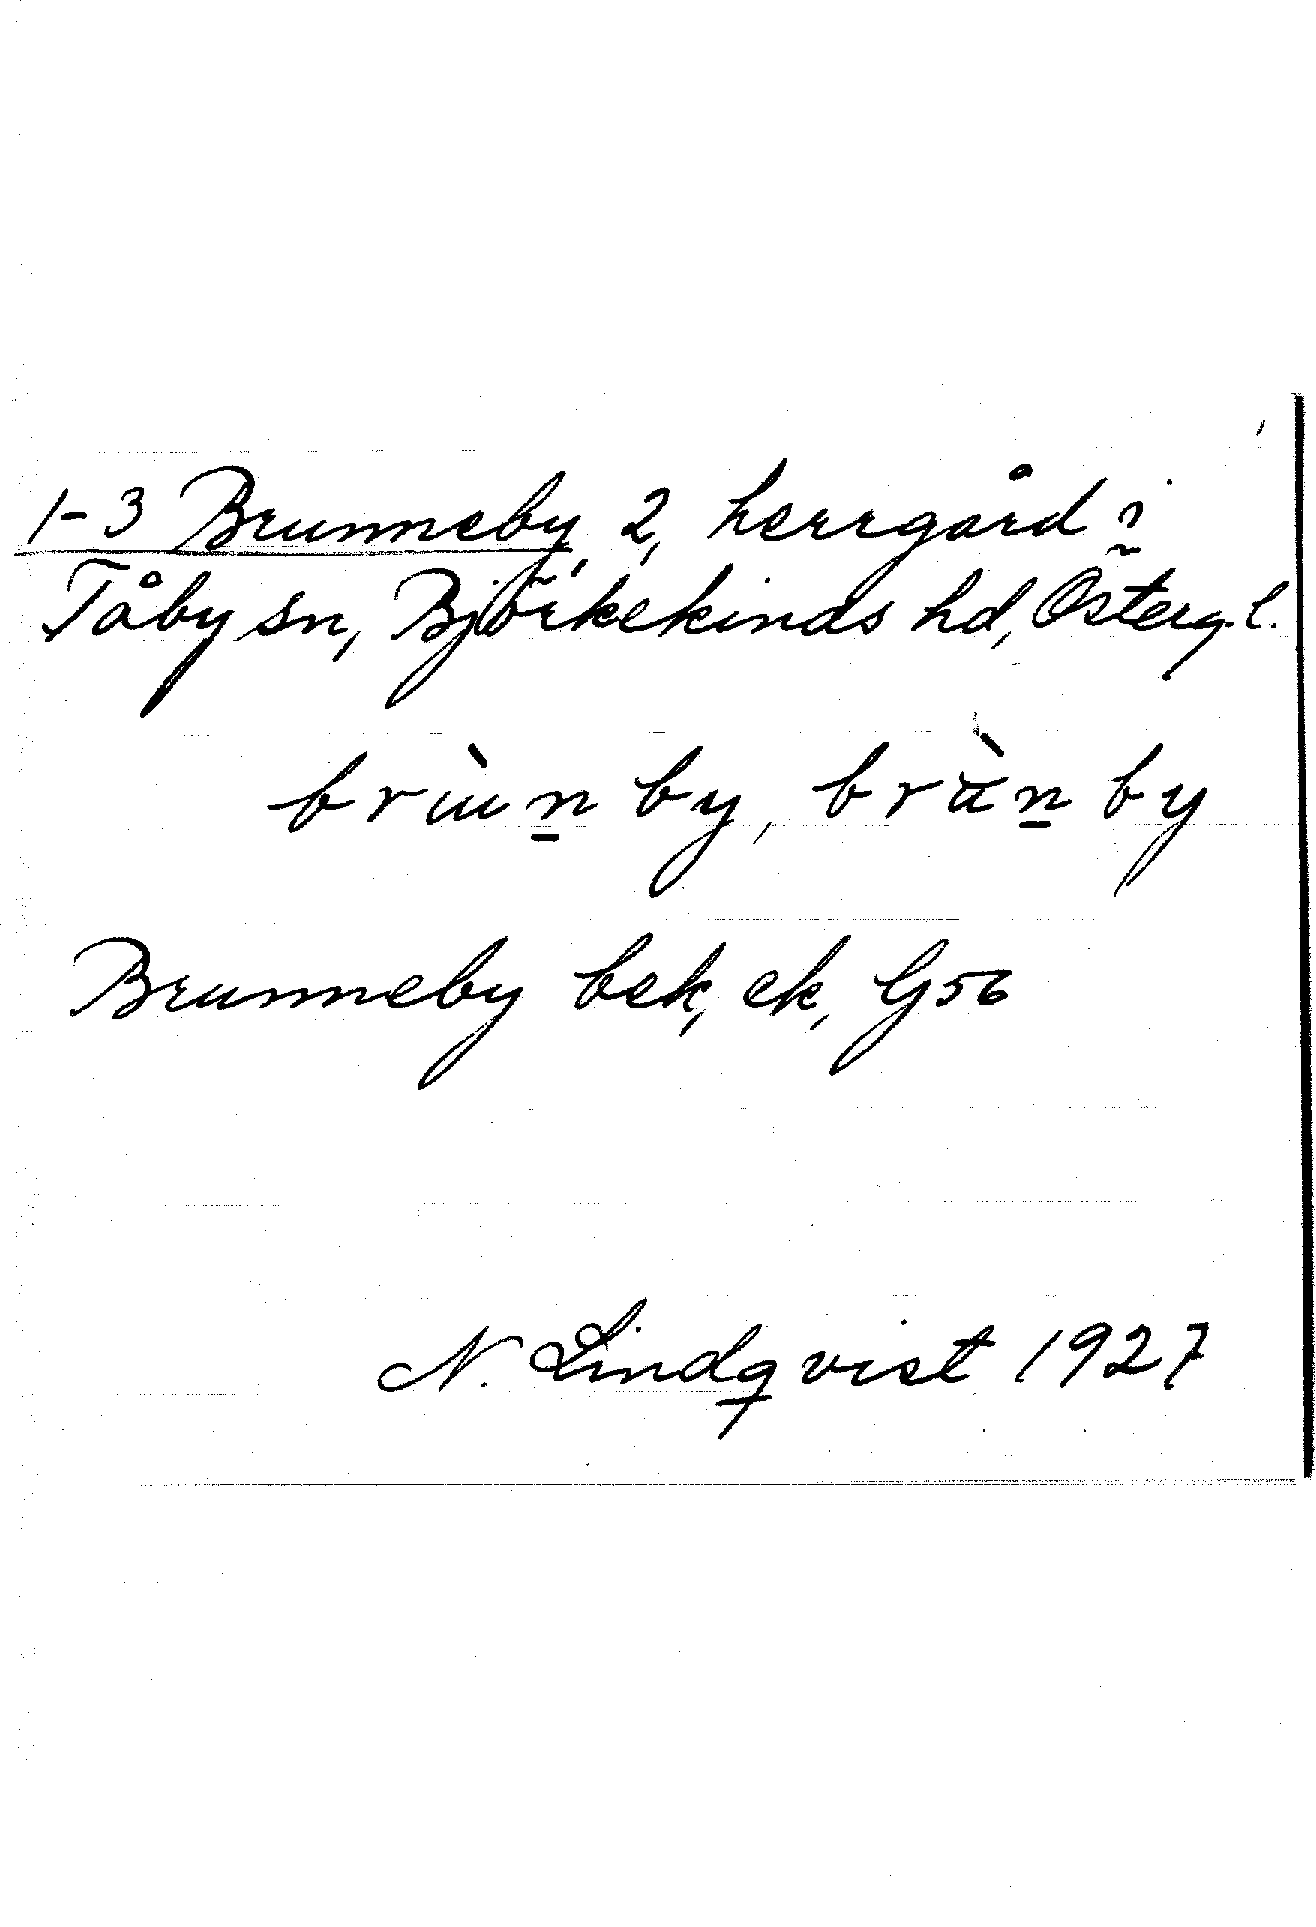 1-3 Brunneby, 2, herrgård i
Tåby sn, Björkekinds hd, Österg. l.
by, by
Brunneby bek, ek, G56
N. Lindqvist 1927